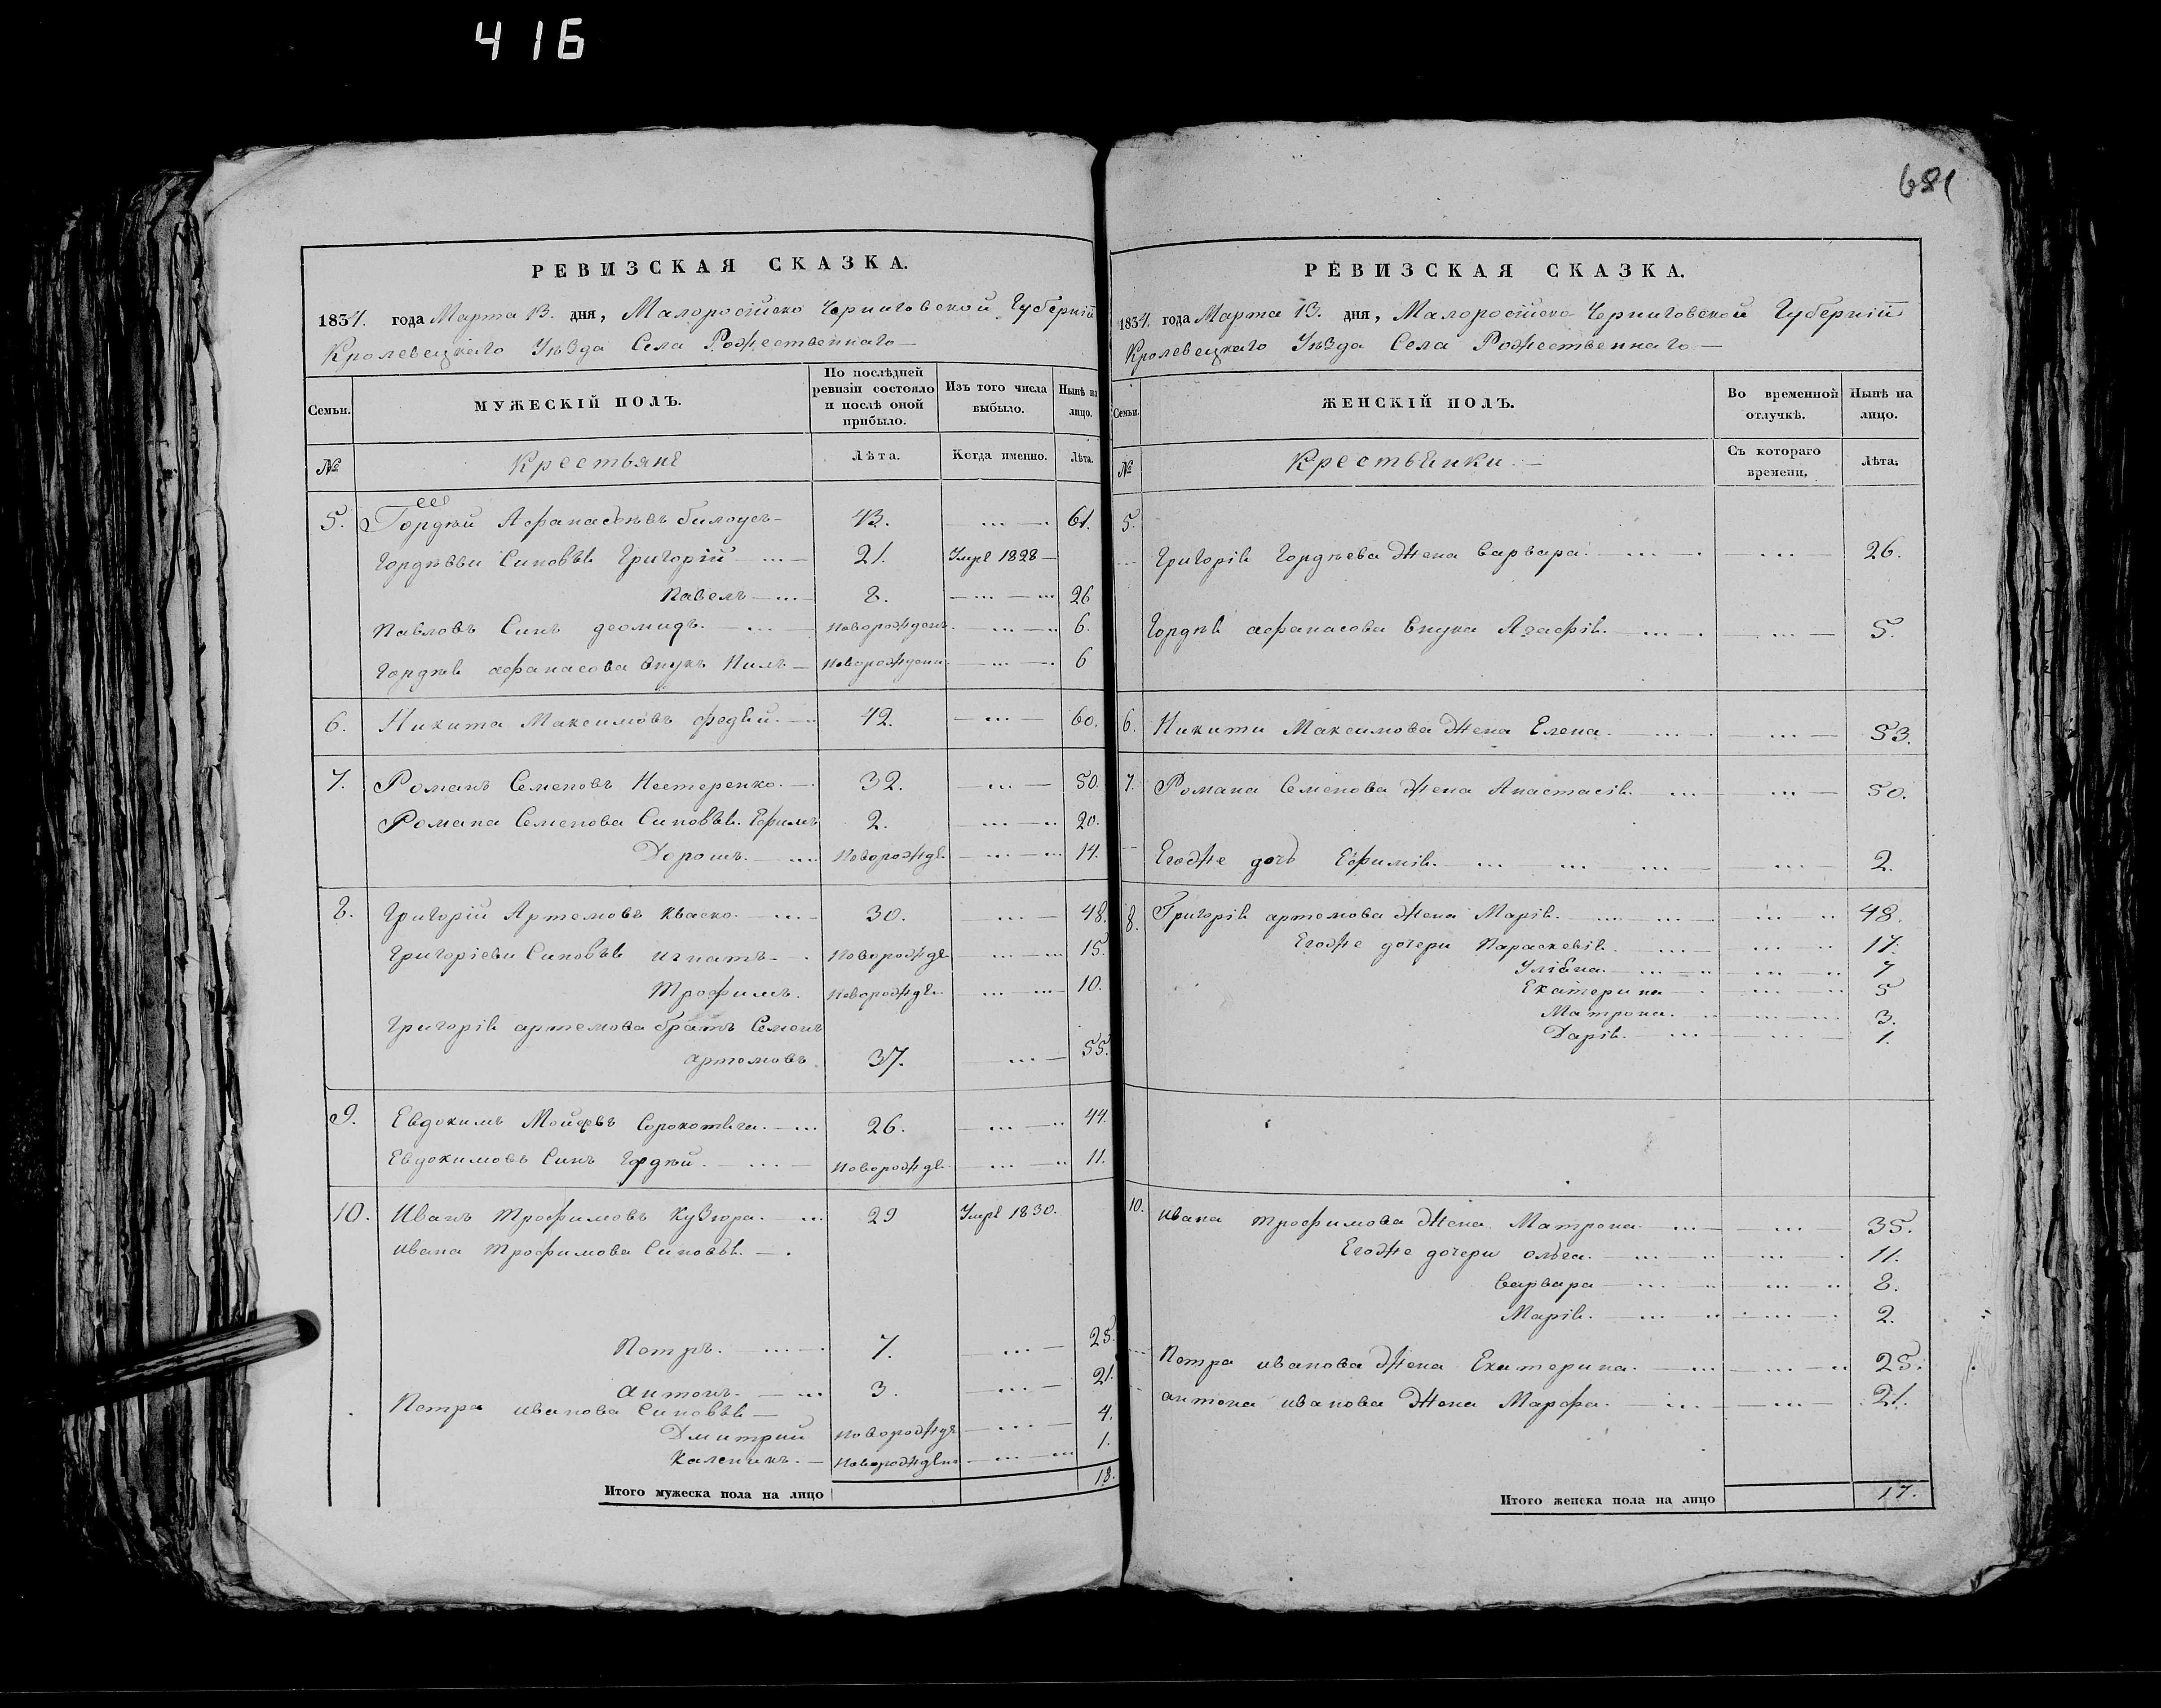 416
681
РЕВИЗСКАЯ СКАЗКА.
1834. года Марта 13. дня, Малоросійско Черниговской Губерніи
Кролевецкаго Уѣзда Села Рождественнаго —
Семьи. МУЖЕСКІЙ ПОЛЪ. По послѣдней ревизіи состояло и послѣ оной прибыло. Изъ того числа выбыло. Нынѣ на лицо.
№ Крестьяне Лѣта. Когда именно. Лѣта.
5. Гордѣй Афанасьевъ билоусъ 43. 61.
Гордѣеви Синовья Григорій 21. Умре 1828
Павелъ 8. 26
Павловъ Синъ Деомидъ. Новорожденъ. 6.
Гордѣя афанасова внукъ Нилъ Новорожденъ 6
6. Никита Максимовъ федей. 42. 60.
7. Романъ Семеновъ Нестеренко. 32. 50.
Романа Семенова Синовья. Ефимъ 2. 20.
Дорошъ. Новорожде. 14.
8. Григорій Артемовъ Кваско. 30. 48.
Григоріеви Синовья игнатъ Новорожде 15.
Трофимъ. Новорожде. 10.
Григорія артемова братъ Семенъ
артемовъ. 37. 55.
9. Евдокимъ Мойсѣевъ Сорокотяга. 26. 44.
Евдокимовъ Синъ Гордѣй. Новорожде. 11.
10. Иванъ Трофимовъ Кузюра. 29 Умре 1830.
ивана Трофимова Синовья.
Петръ. 7. 25.
антонъ. 3. 21.
Петра иванова Синовья
Дмитрий Новорожде 4.
Каленикъ. Новорожден. 1.
Итого мужеска пола на лицо 18.
РЕВИЗСКАЯ СКАЗКА.
1834. года Марта 13. дня, Малоросійско Черниговской Губерніи
Кролевецкаго Уѣзда Села Рождественнаго —
Семьи. ЖЕНСКІЙ ПОЛЪ. Во временной отлучкѣ. Нынѣ на лицо.
№ Крестьянки. Съ котораго времени. Лѣта.
5.
Григорія Гордѣева Жена Варвара. 26.
Гордѣя афанасова Внука Агафія. 5.
6. Никити Максимова Жена Елена. 53.
7. Романа Семенова Жена Анастасія. 50.
Егоже дочь Ефимія. 2.
8. Григорія артемова Жена Марія. 48.
Егоже дочери Параскевія. 17.
Уліяна. 7
Екатерина 5
Матрона. 3.
Дарія. 1.
10. ивана Трофимова Жена Матрона. 35.
Егоже дочери ольга. 11.
Варвара 8.
Марія. 2.
Петра иванова Жена Екатерина. 25.
антона иванова Жена Марфа. 21.
Итого женска пола на лицо 17.